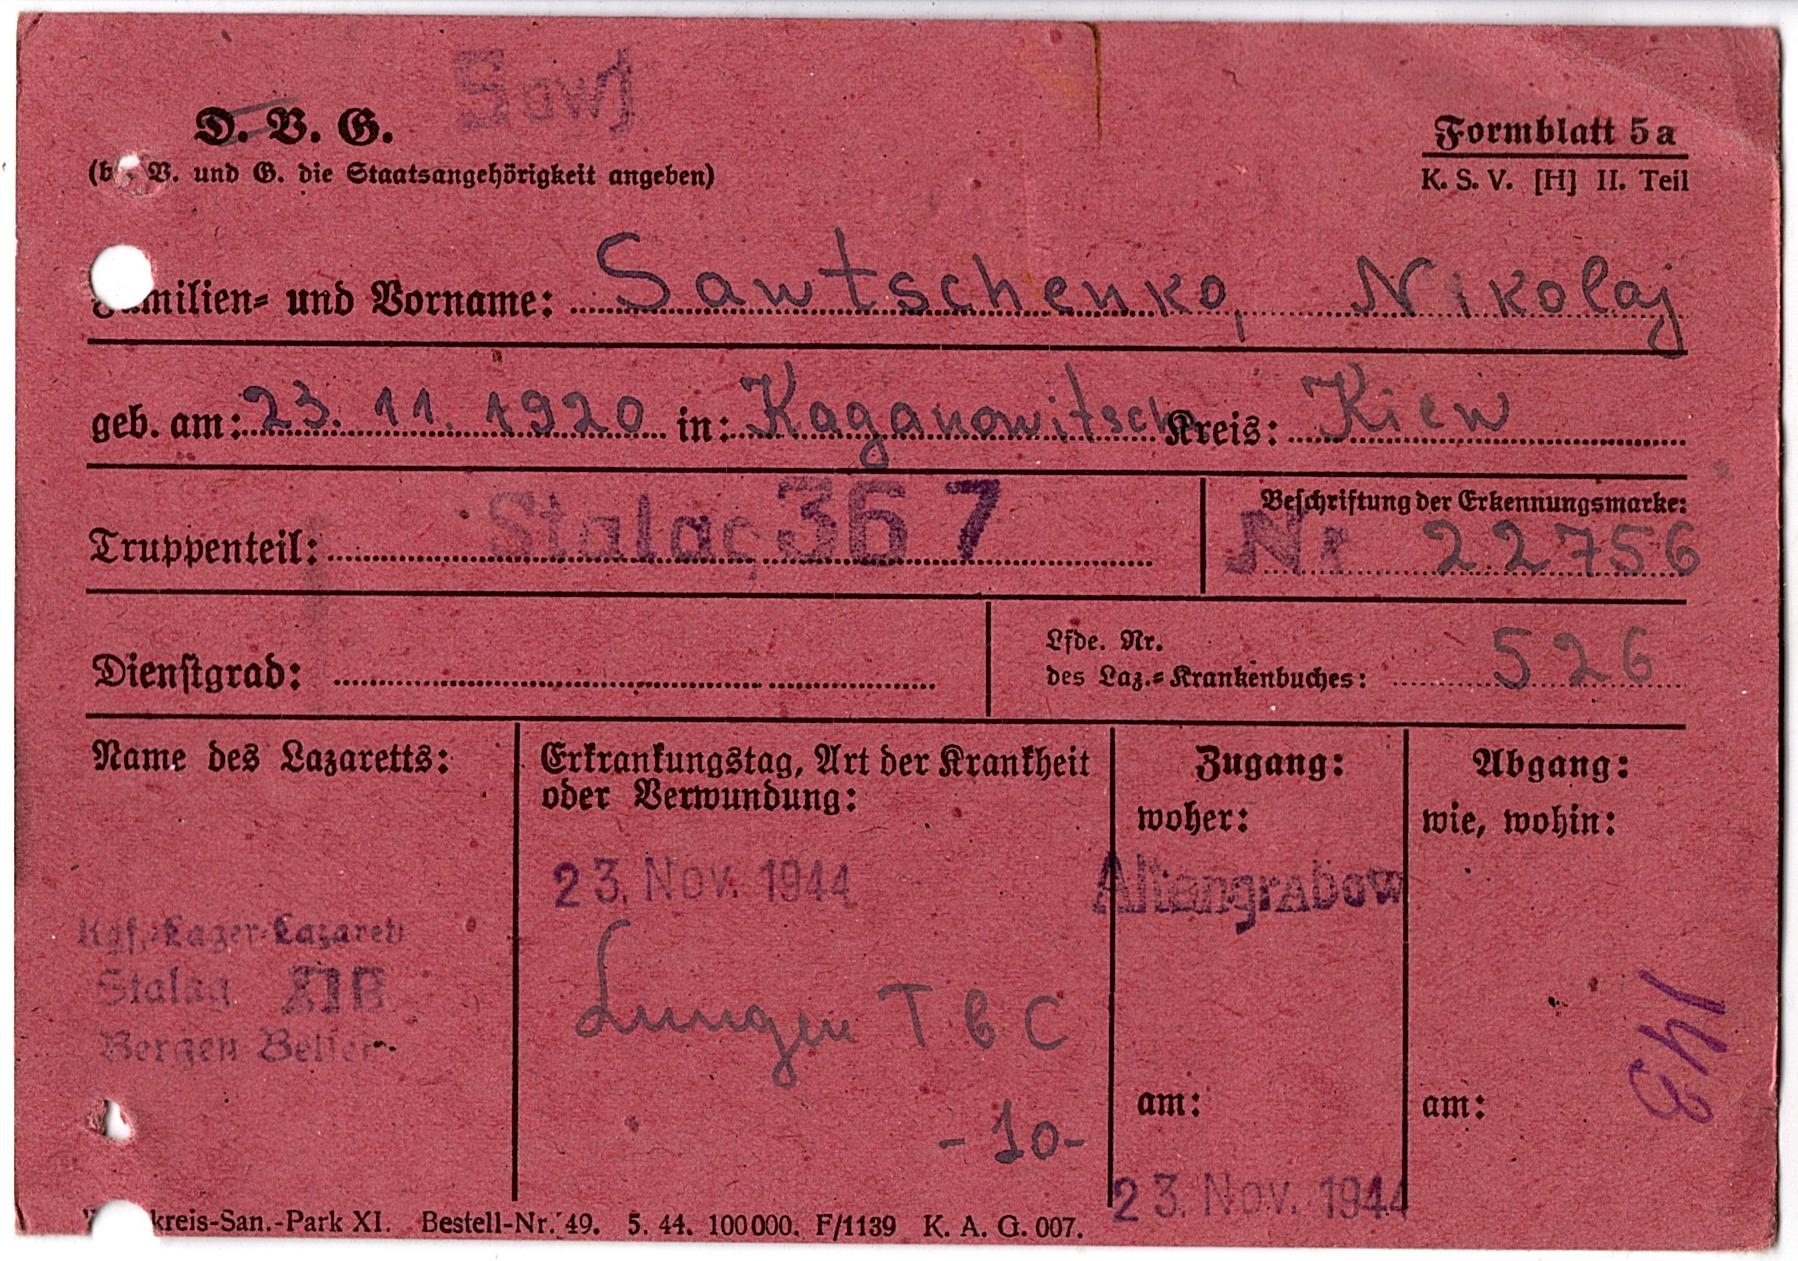 Sowj
D. V. G. Formblatt 5a
V. und G. die Staatsangehörigkeit angeben) K. S. V. [H] II. Teil
Familien- und Vorname: Sawtschenko, Nikolaj
geb. am: 23. 11. 1920 in: Kaganowitsch Kreis: Kiew
Beschriftung der Erkennungsmarke:
Truppenteil: Stalag 367 Nr 22756
Lfde. Nr.
Dienstgrad: des Laz.-Krankenbuches: 526
Name des Lazaretts:
Kgf.-Lager-Lazarett
Stalag XI B
Bergen Belsen
Erkrankungstag, Art der Krankheit
oder Verwundung:
23. Nov. 1944
Lungen TbC
-10-
Zugang:
woher:
Altengrabow
am:
23. Nov. 1944
Abgang:
wie, wohin:
143
am:
kreis-San.-Park XI. Bestell-Nr. 49. 5. 44. 100000. F/1139 K. A. G. 007.